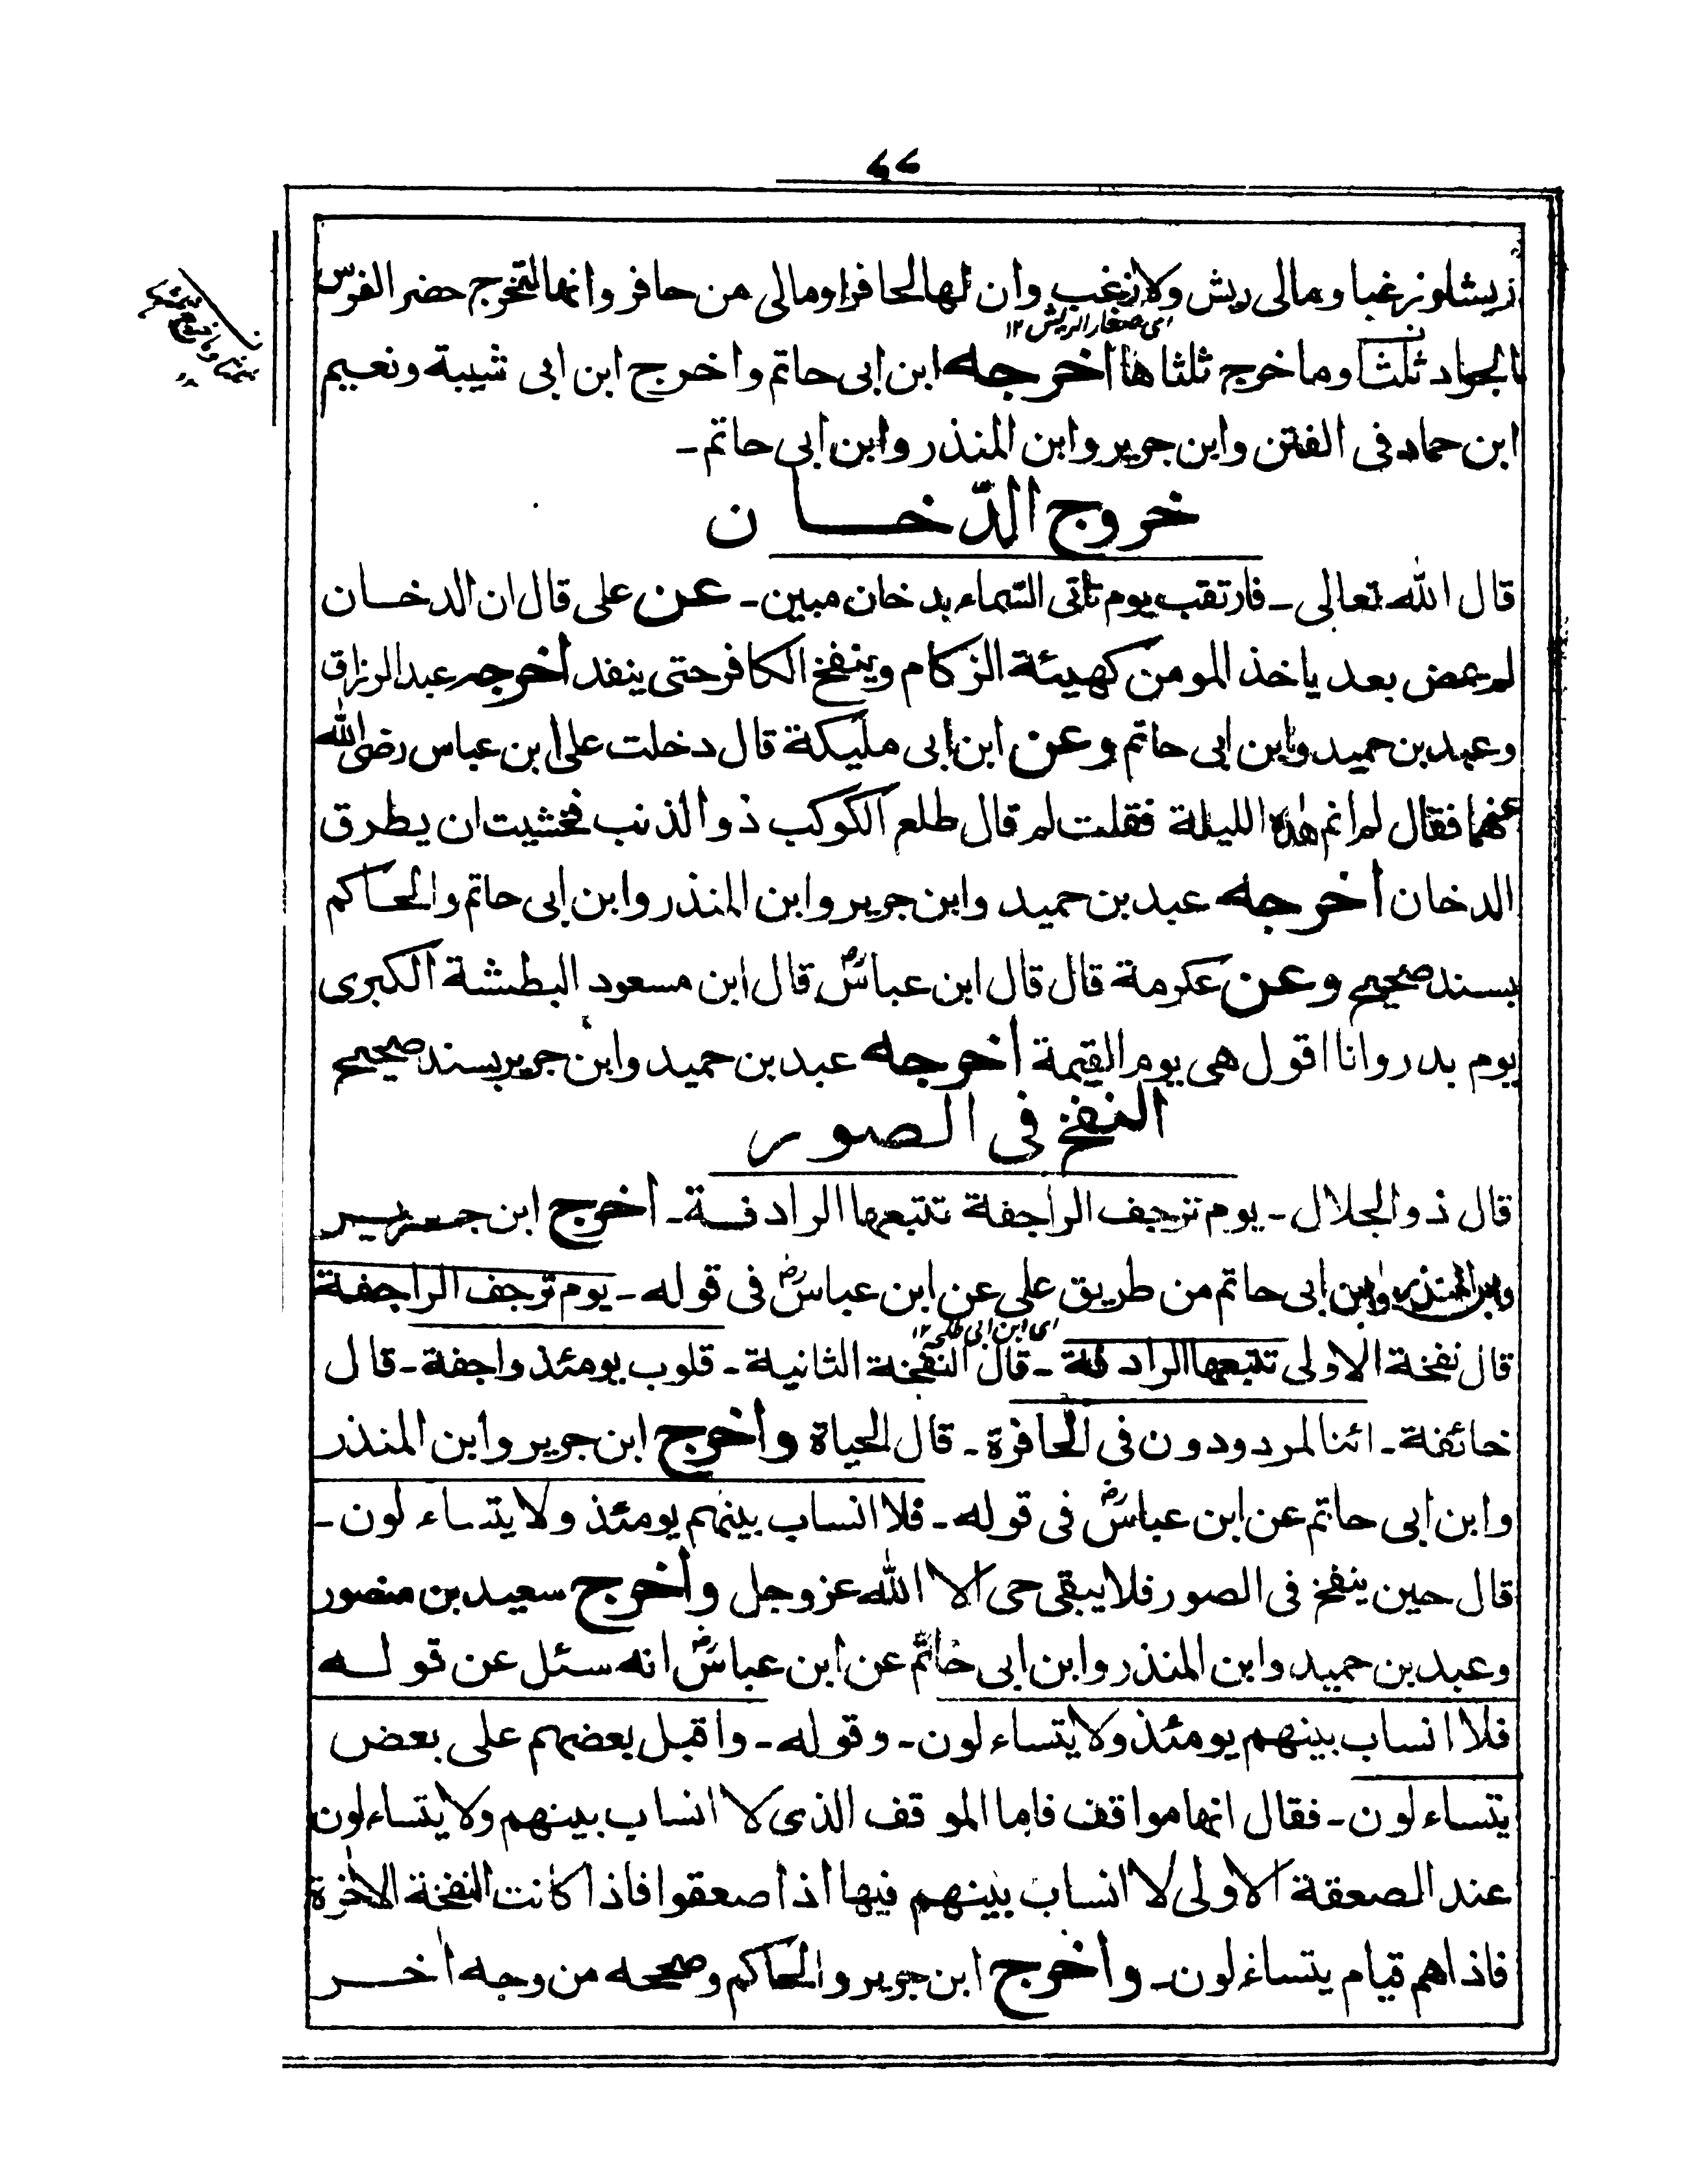 ٦٧
ريشا وزغبا ومالى ريش ولازغب وان لها لحافرا ومالى من حافر وانها لتخرج حضر الفرس
اى صغار الريش ١٢
الجواد ثلثا وما خرج ثلثاها اخرجه ابن ابى حاتم واخرج ابن ابى شيبة ونعيم
ابن حماد فى الفتن وابن جرير وابن المنذر وابن ابى حاتم ـ
خروج الدّخان
قال الله تعالى ـ فارتقب يوم تاتى السّماء بدخان مبين ـ عن على قال ان الدخان
لم يمض بعد ياخذ المومن كهيئة الزكام وينفخ الكافر حتى ينفد اخرجه عبد الرزاق
وعبد بن حميد وابن ابى حاتم وعن ابن ابى مليكة قال دخلت على ابن عباس رضى الله
عنهما فقال لم انم هذه الليلة فقلت لم قال طلع الكوكب ذو الذنب فخشيت ان يطرق
الدخان اخرجه عبد بن حميد وابن جرير وابن المنذر وابن ابى حاتم والحاكم
بسند صحيح وعن عكرمة قال قال ابن عباس رض قال ابن مسعود البطشة الكبرى
يوم بدر وانا اقول هى يوم القيمة اخرجه عبد بن حميد وابن جرير بسند صحيح
النفخ فى الصور
قال ذو الجلال ـ يوم ترجف الراجفة تتبعها الرادفة ـ اخرج ابن جرير
وابن المنذر وابن ابى حاتم من طريق على عن ابن عباس رض فى قوله ـ يوم ترجف الراجفة
اى ابن ابى طلحة ١٢
قال نفخة الاولى تتبعها الرادفة ـ قال النفخة الثانية ـ قلوب يومئذ واجفة ـ قال
خائفة ـ ائنا لمردودون فى الحافرة ـ قال الحياة واخرج ابن جرير وابن المنذر
وابن ابى حاتم عن ابن عباس رض فى قوله ـ فلا انساب بينهم يومئذ ولا يتساءلون ـ
قال حين ينفخ فى الصور فلا يبقى حى الا الله عزوجل واخرج سعيد بن منصور
وعبد بن حميد وابن المنذر وابن ابى حاتم عن ابن عباس رض انه سئل عن قوله
فلا انساب بينهم يومئذ ولا يتساءلون ـ وقوله ـ واقبل بعضهم على بعض
يتساءلون ـ فقال انها مواقف فاما الموقف الذى لا انساب بينهم ولا يتساءلون
عند الصعقة الاولى لا انساب بينهم فيها اذا صعقوا فاذا كانت النفخة الاخرة
فاذا هم قيام يتساءلون ـ واخرج ابن جرير والحاكم وصححه من وجه اخر